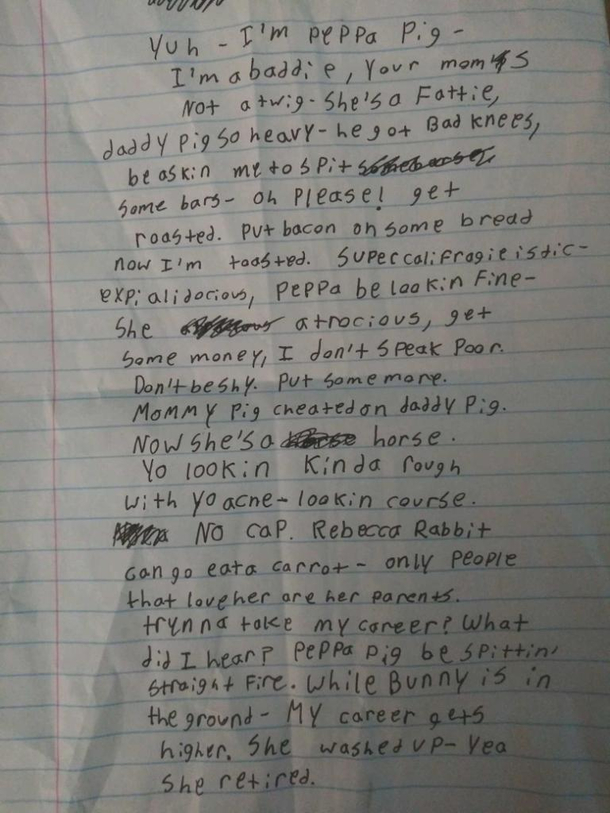 Yuh - I'm Peppa Pig -
I'm a baddie, Your mom's
Not a twig - She's a Fattie,
daddy Pig so heavy - he got Bad knees,
be askin me to spit
some bars - oh Please! get
roasted. Put bacon on some bread
now I'm toasted. Supercalifragieistic-
expialidocious, Peppa be lookin Fine -
She atrocious, get
some money, I don't speak Poor.
Don't be shy. Put some more.
Mommy Pig cheated on daddy Pig.
Now she's a horse.
Yo lookin Kinda rough
with yo acne - lookin course.
No cap. Rebecca Rabbit
can go eat a carrot - only People
that love her are her parents.
trynna take my career? What
did I hear? Peppa Pig be spittin'
straight Fire. While Bunny is in
the ground - My career gets
higher. She washed up - Yea
She retired.